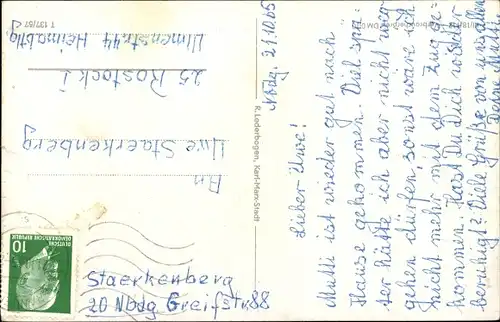 Nbdg. 21.10.65
Lieber Uwe!
Mutti ist wieder gut nach
Hause gekommen. Viel spä-
ter hätte ich aber nicht weg
gehen dürfen, sonst wäre ich
nicht mehr mit dem Zug ge-
kommen. Hast Du Dich wieder
beruhigt? Viele Grüße von uns allen
Deine Mutti
R. Lederbogen, Karl-Marx-Stadt
An
Uwe Staerkenberg
25 Rostock 1
Ulmenstr. 44 Heimabtlg.
T 137/57
Staerkenberg
20 Nbdg Greifstr 88
DEUTSCHE
DEMOKRATISCHE REPUBLIK
10